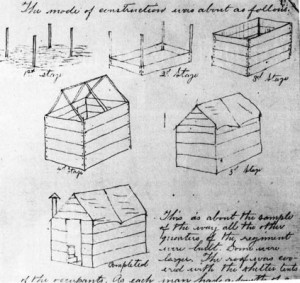 The mode of construction was about as follows.
1st Stage
2d Stage
3d Stage
4th Stage
5th Stage
Completed
This is about the sample
of the way all the other
quarters of the regiment
were built. Some were
larger. The roof was cov-
ered with the shelter tents
of the occupants. As each man had a